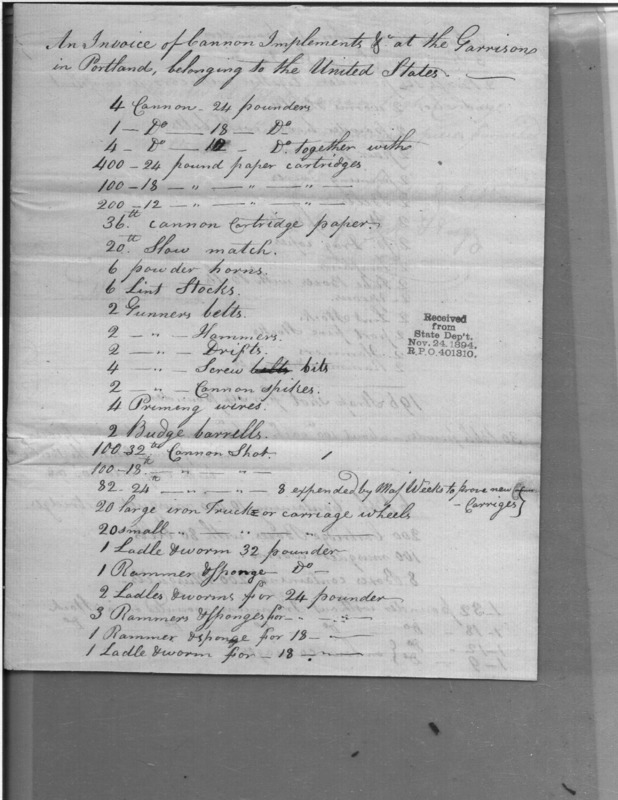 An Invoice of Cannon Implements &c at the Garrison
in Portland, belonging to the United States
4 Cannon - 24 pounders
1 - Do - 18 Do
4 - Do - 12 - Do. together with
400 - 24 pound paper cartridges
100 - 18 - " - " - " -
200 - 12 - " - " - " -
36th. cannon Cartridge paper.
20th. Slow match.
6 powder horns.
6 Lint Stocks.
2 Gunners belts.
2 - " - Hammers.
2 - " - Drifts.
4 - " - Screw belts bits
2 - " - Cannon spikes.
4 Priming wires.
2 Budge barrells.
100 32th Cannon Shot.
100 - 18th - " - " -
82 - 24th - " - " - 8 expended by Maj Weeks to prove new
- Carriges
20 large iron Trucks or carriage wheels
20 small " " "
1 Ladle & worm 32 pounder
1 Rammer & sponge Do -
2 Ladles & worms for 24 pounder
3 Rammers & sponges for - " - " -
1 Rammer & sponge for 18 - " -
1 Ladle & worm for - 18 - " -
Received
from
State Dep't.
Nov. 24. 1894.
R.P.O. 401310.